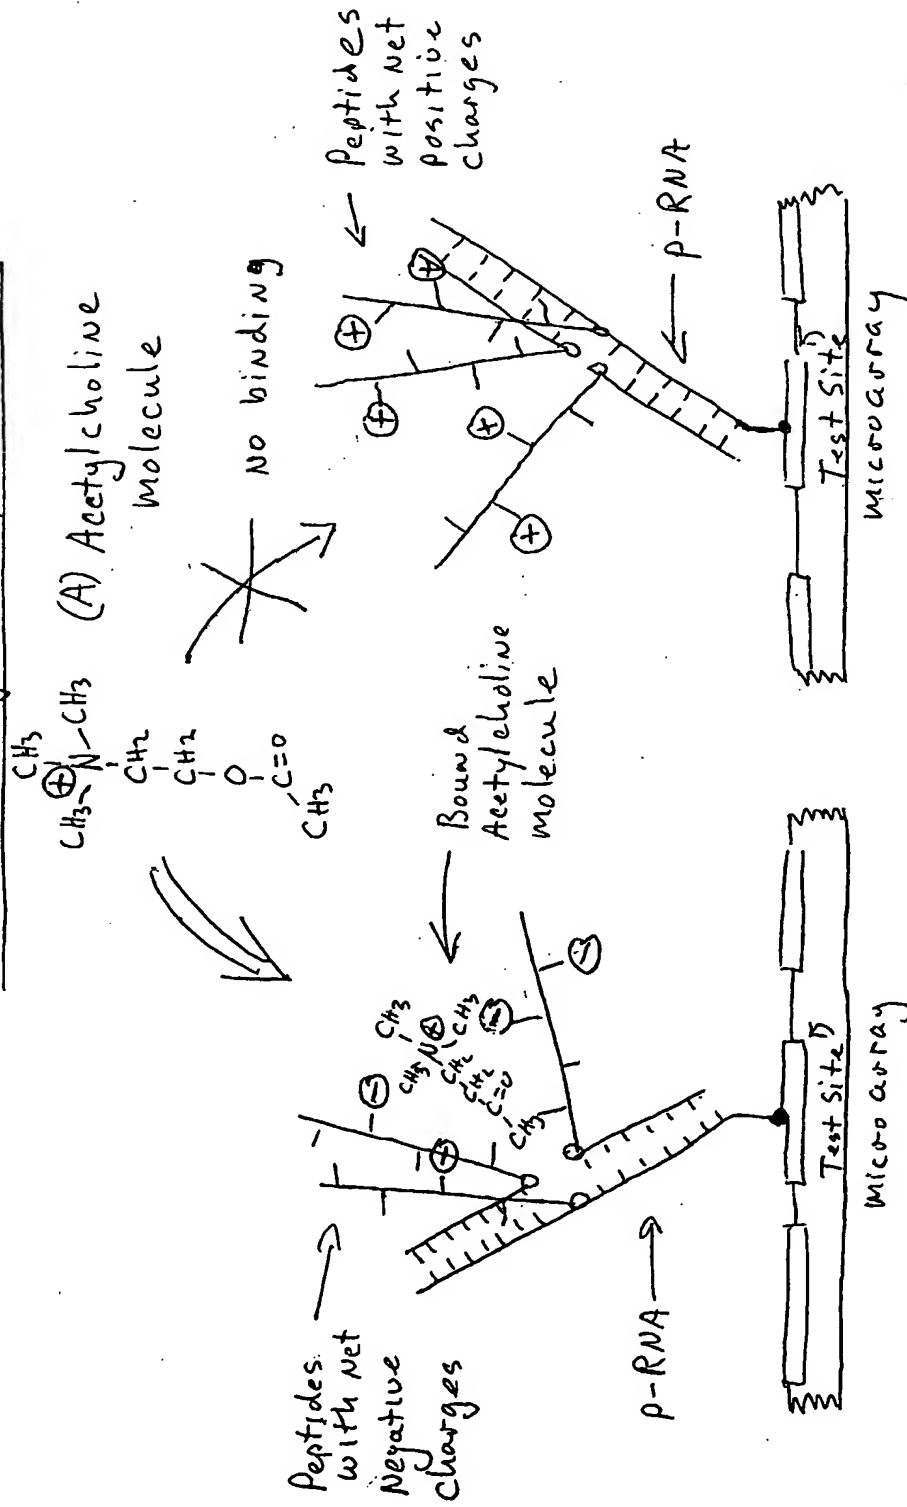 CH3
⊕
CH3-N-CH3
CH2
CH2
O
C=O
CH3
(A) Acetylcholine
molecule
No binding
Peptides
with Net
positive
charges
+
+
+
+
+
p-RNA
Test Site
microarray
Bound
Acetylcholine
molecule
CH3
CH3 N ⊕
CH3
CH2
CH2
C=O
CH3
Peptides
with Net
Negative
Charges
−
+
−
−
p-RNA
Test Site
microarray